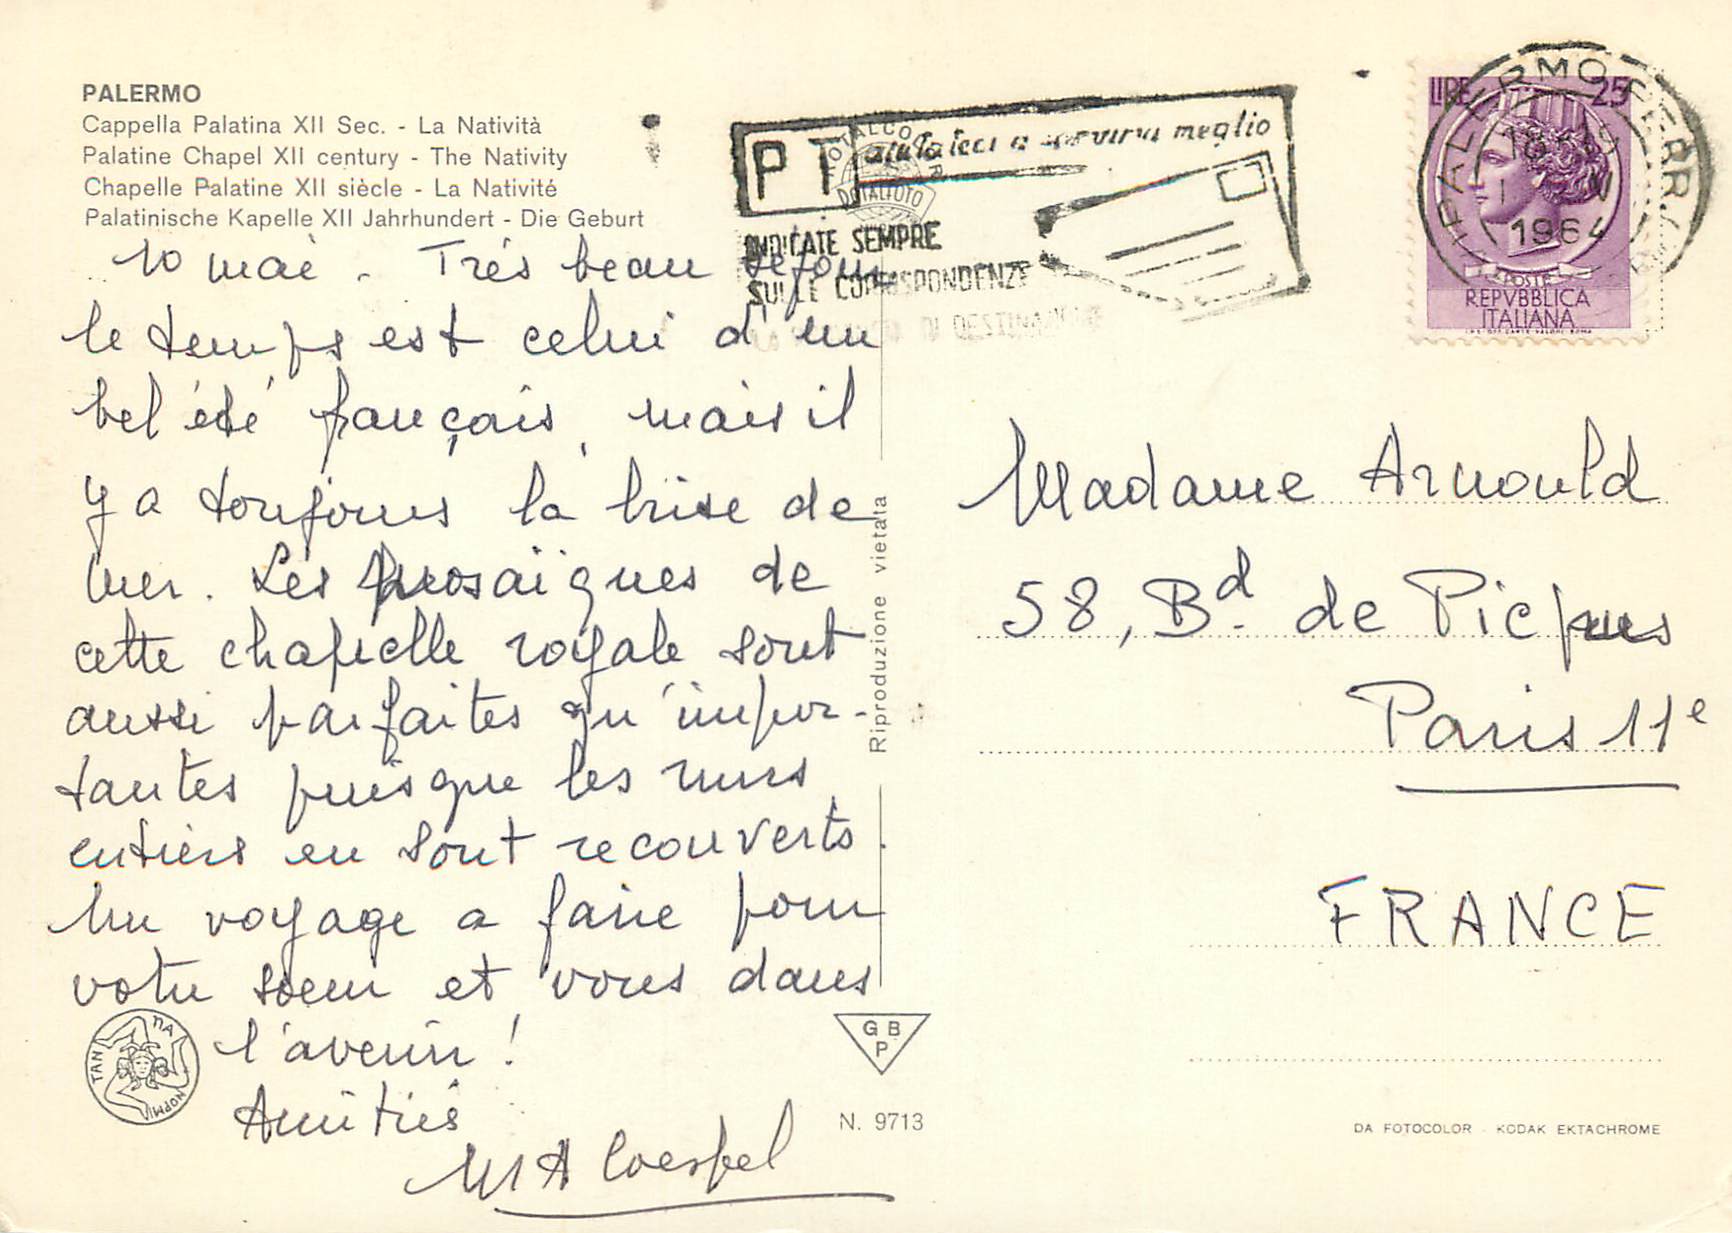 PALERMO
Cappella Palatina XII Sec. - La Natività
Palatine Chapel XII century - The Nativity
Chapelle Palatine XII siècle - La Nativité
Palatinische Kapelle XII Jahrhundert - Die Geburt
10 mai. Très beau séjour
le temps est celui d'un
bel été français, mais il
y a toujours la brise de
mer. Les mosaïques de
cette chapelle royale sont
aussi parfaites qu'impor-
tantes puisque les murs
entiers en sont recouverts.
Un voyage a faire pour
votre soeur et vous dans
l'avenir !
Amitiés
MA
Riproduzione vietata
G B
P
N. 9713
PT aiutateci a servirvi meglio
INDICATE SEMPRE
SULLE CORRISPONDENZE
DI DESTINAZIONE
DOTALFOTO
PALERMO FERR
1964
LIRE 25
POSTE
REPVBBLICA
ITALIANA
Madame Arnould
58, Bd. de Picpus
Paris 11e
FRANCE
DA FOTOCOLOR - KODAK EKTACHROME